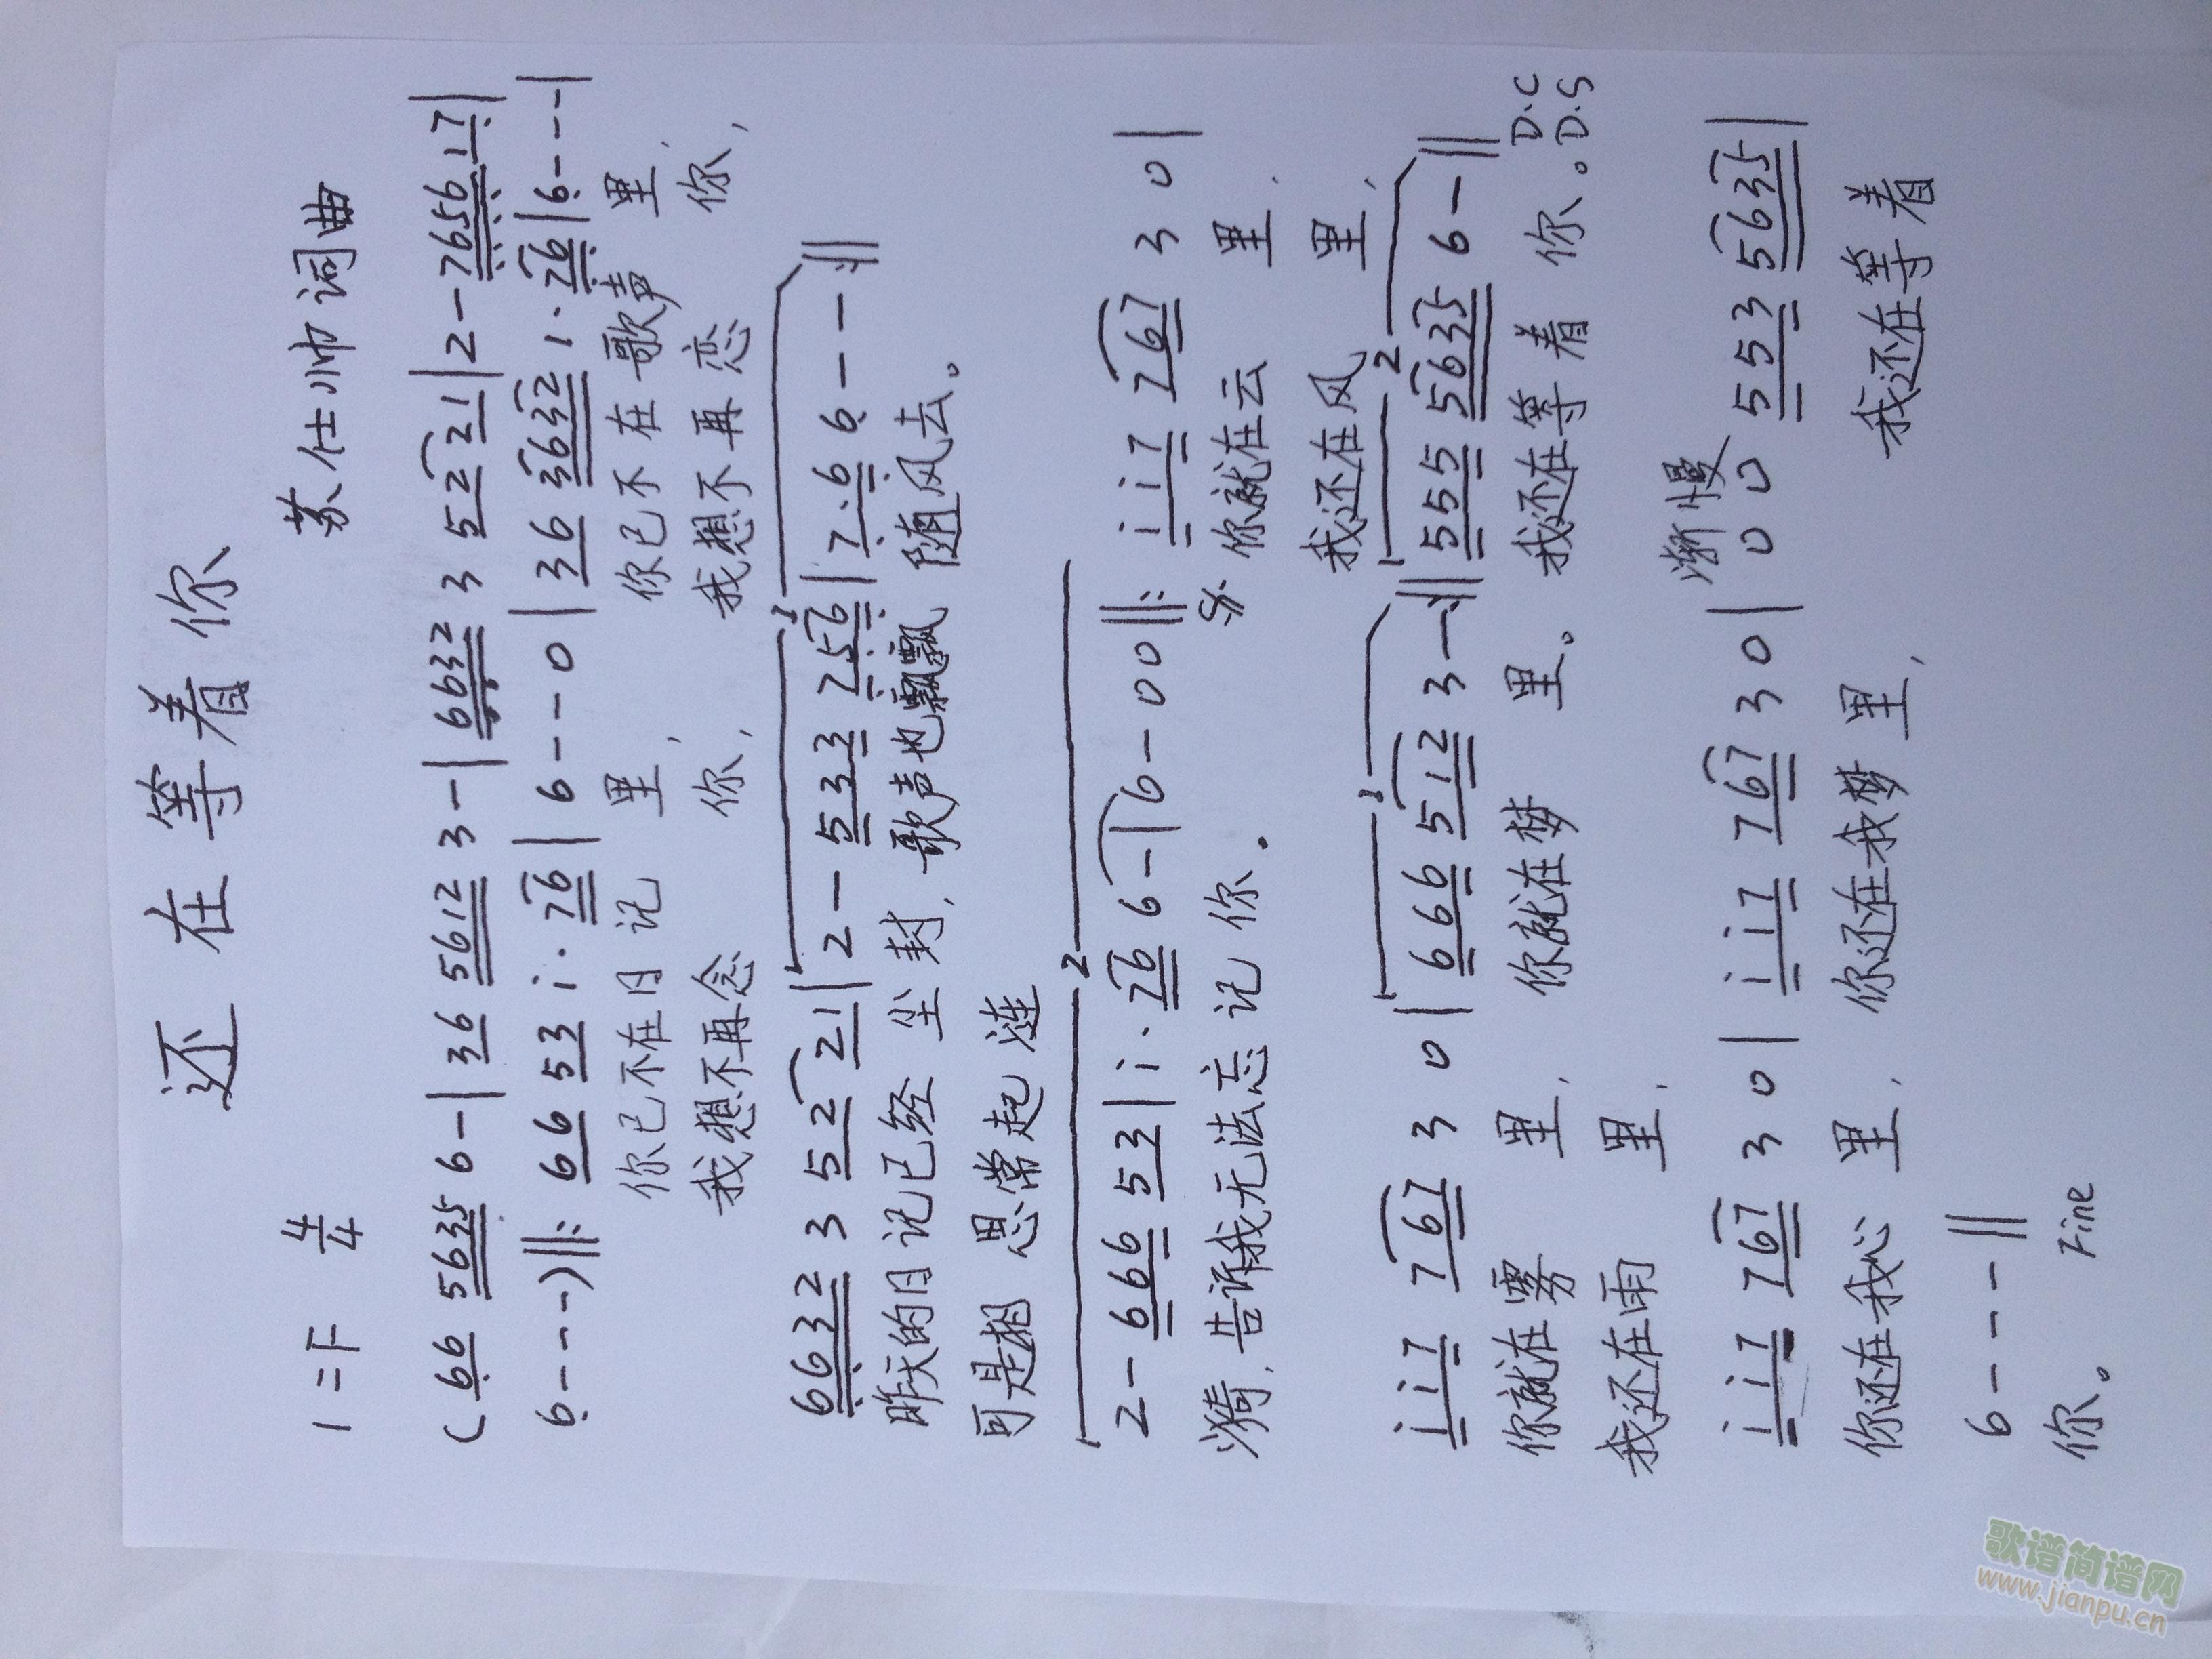 还在等着你
1=F 4/4 苏仕帅词曲
(66 5635 6-|36 5612 3-|6632 3 52 21|2-7656 17|
6---)‖: 66 53 i·76|6--0|36 3632 1·76|6---|
你已不在日记里, 你已不在歌声里,
我想不再念你, 我想不再恋你,
6632 3 52 21|2-533 256|7·6 6--:‖
昨天的日记已经尘封,歌声也飘飘随风去。
可是相思常起涟
2-666 53|i·76 6-|6-00‖: ii7 767 30|
漪,告诉我无法忘记你。 你就在云里,
我还在风里,
ii7 767 30|666 512 3-:‖555 5635 6-‖
你就在雾里, 你就在梦里。 我还在等着你。 D.C
我还在雨里, D.S
渐慢
ii7 767 30|ii7 767 30|00 553 5635|
你还在我心里, 你还在我梦里, 我还在等着
6---‖
你。 Fine
歌谱简谱网
www.jianpu.cn